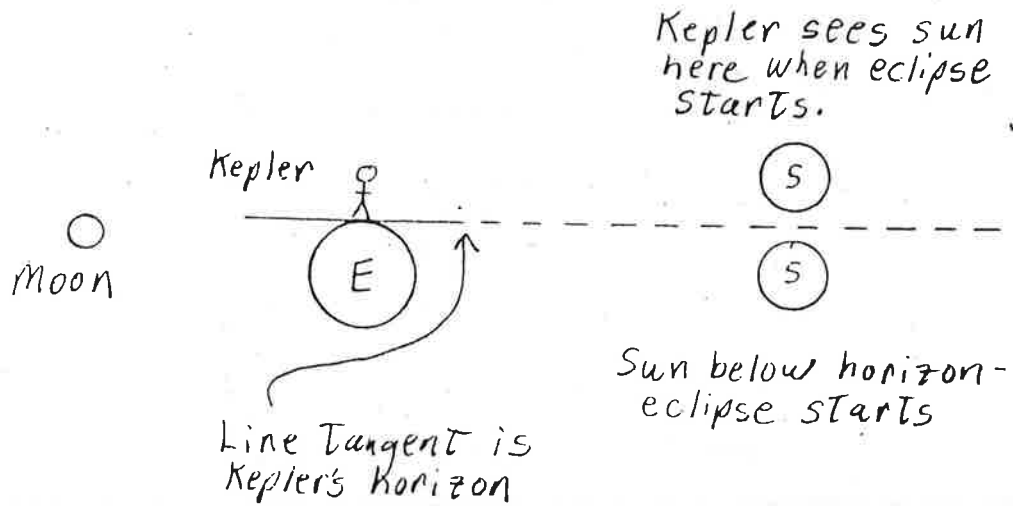 Kepler sees sun
here when eclipse
starts.
Kepler
S
Moon
E
S
Sun below horizon-
eclipse starts
Line Tangent is
Kepler's horizon